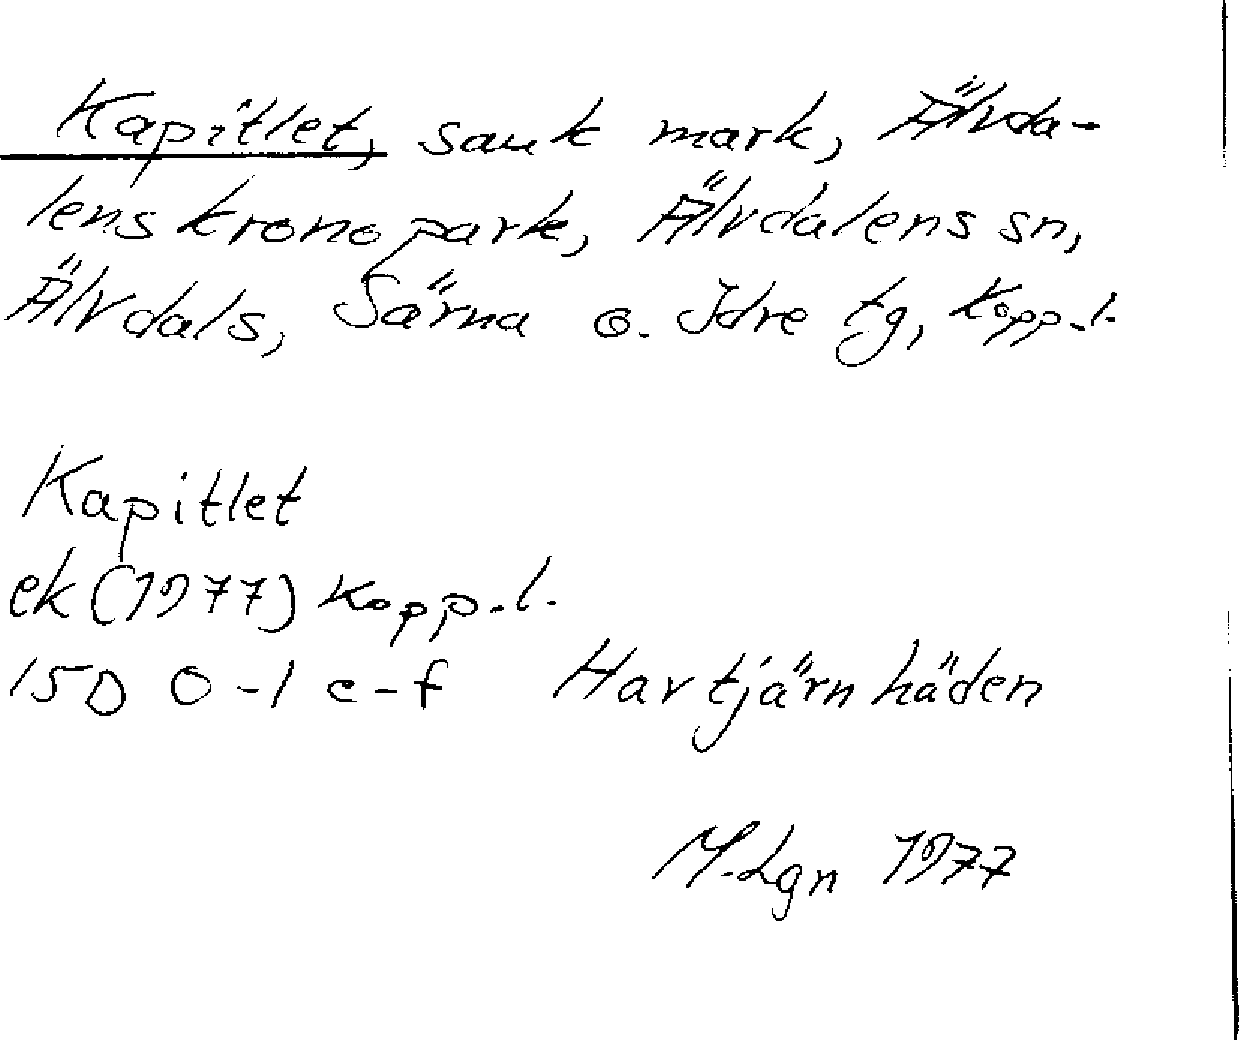 Kapitlet, sank mark, Älvda-
lens kronopark, Älvdalens sn,
Älvdals, Särna o. Idre tg, Kopp.l.
Kapitlet
ek (1977) Kopp.l.
15D 0-1 e-f Havtjärnhäden
M.Lgn 1977